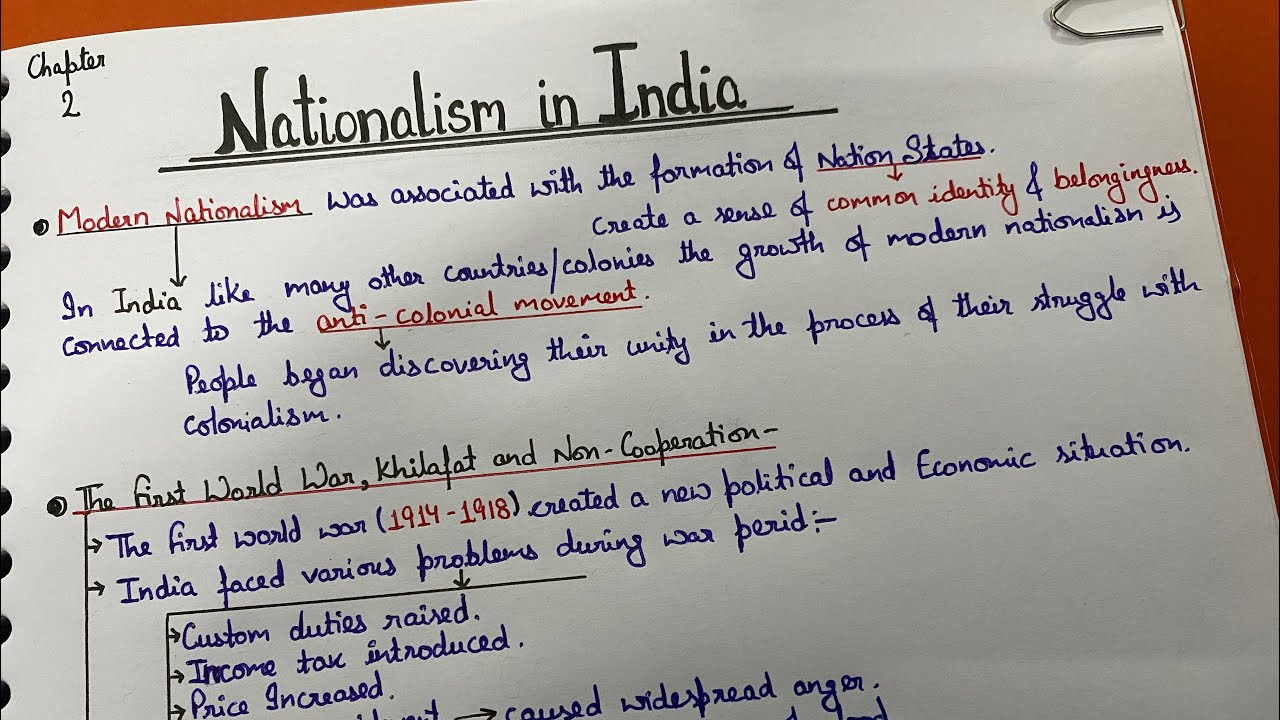 Chapter
2
Nationalism in India
Modern Nationalism was associated with the formation of Nation States.
create a sense of common identity & belongingness.
In India like many other countries/colonies the growth of modern nationalism is
connected to the anti-colonial movement.
People began discovering their unity in the process of their struggle with
colonialism.
The first World War, Khilafat and Non-Cooperation-
The first world war (1914-1918) created a new political and Economic situation.
India faced various problems during war perid:-
Custom duties raised.
Income tax introduced.
Price Increased.
caused widespread anger.